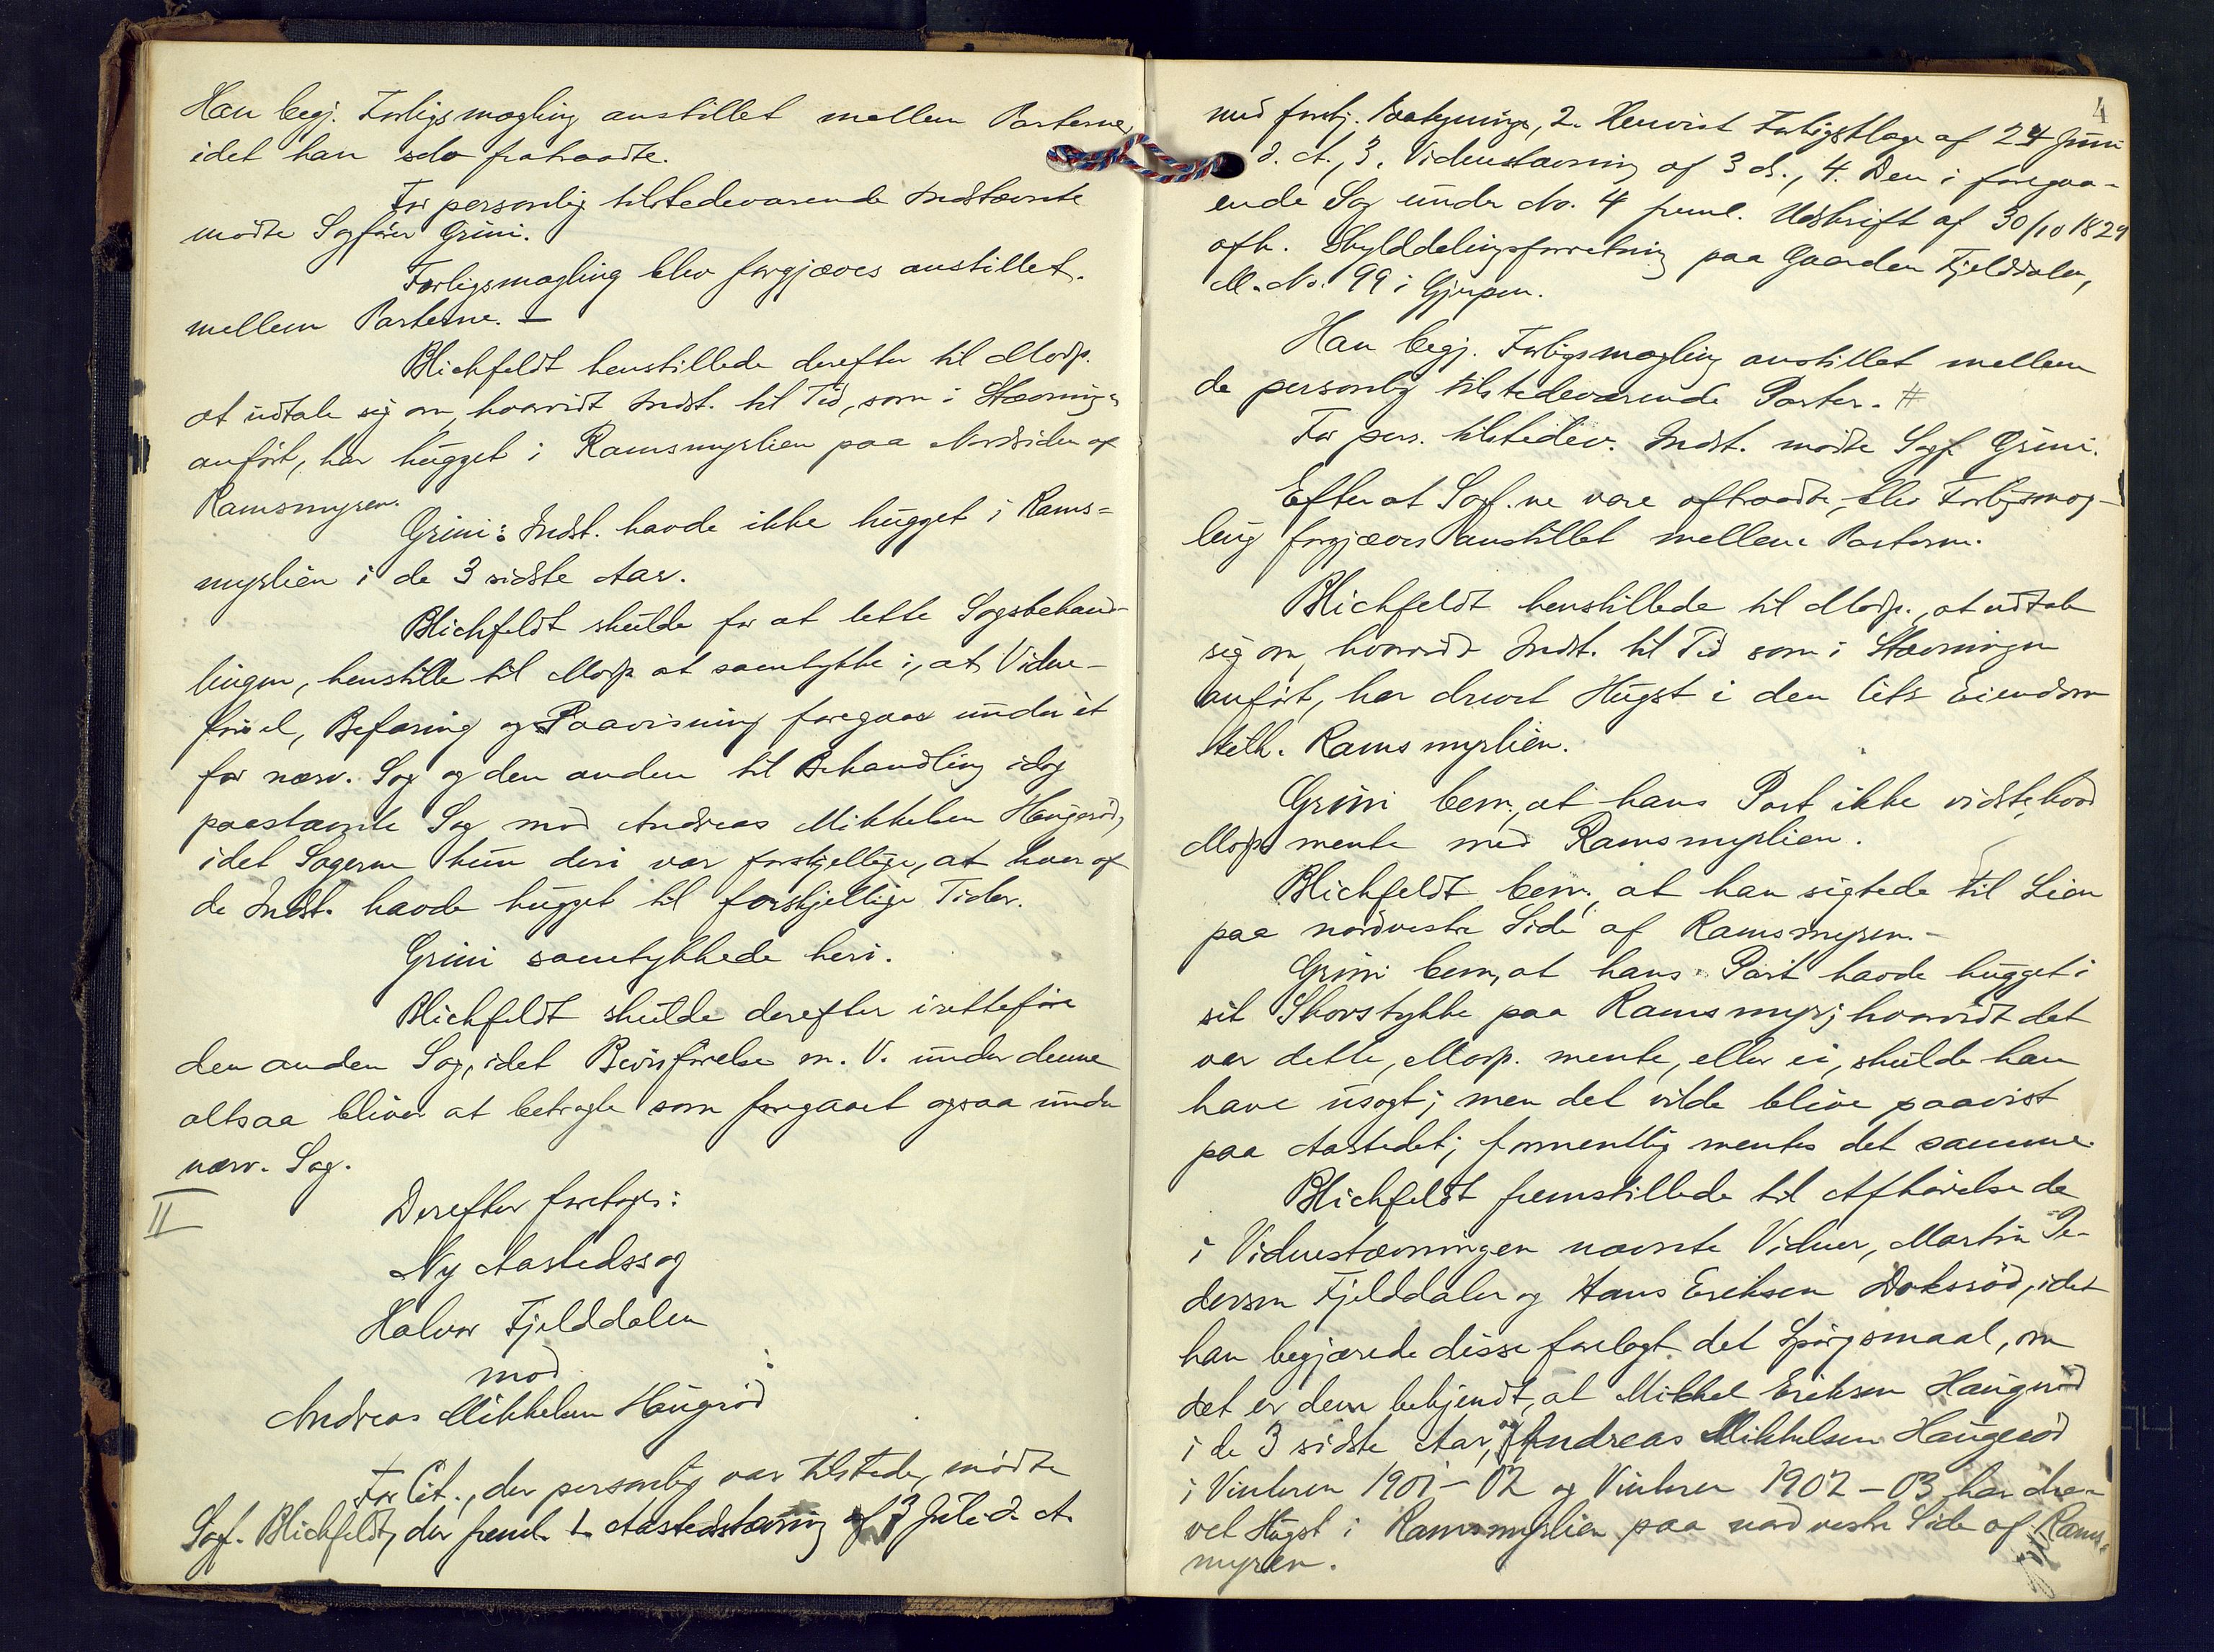 Han begj. Forligsmægling anstillet mellem Parterne,
idet han selv fratraadte.
For personlig tilstedeværende Indstævnte
mødte Sagfører Grini.
Forligsmægling blev forgjæves anstillet
mellem Parterne. —
Blichfeldt henstillede derefter til Modp.
at udtale sig om, hvorvidt Indst. til Tid, som i Stævningen
anført, har hugget i Ramsmyrlien paa Nordsiden af
Ramsmyren.
Grini: Indst. havde ikke hugget i Rams=
myrlien i de 3 sidste Aar.
Blichfeldt skulde for at lette Sagsbehand-
lingen, henstille til Modp. at samtykke i, at Vidne-
førsel, Befaring og Paavisning foregaar under ét
for nærv. Sag og den anden til Behandling idag
paastævnte Sag mod Andreas Mikkelsen Haugerød,
idet Sagerne kun deri var forskjellige, at hver af
de Indst. havde hugget til forskjellige Tider.
Grini samtykkede heri.
Blichfeldt skulde derefter iretteføre
den anden Sag, idet Bevisførelse m. V. under denne
altsaa bliver at betragte som foregaaet ogsaa under
nærv. Sag.
II
Derefter foretoges:
Ny Aastedssag
Halvor Fjelddalen
mod
Andreas Mikkelsen Haugerød
For Cit., der personlig var tilstede, mødte
Sagf. Blichfeldt, der freml. 1. Aastedsstævning af 3 Juli d. A.
4
med forskj. Paategninger, 2. Henvist Forligsklage af 24 Juni
d. A., 3. Vidnestævning af 3 ds., 4. Den i foregaa-
ende Sag under No. 4 freml. Udskrift af 30/10 1829
afh. Skylddelingsforretning paa Gaarden Fjelddalen,
M. No. 99 i Gjerpen.
Han begj. Forligsmægling anstillet mellem
de personlig tilstedeværende Parter. #
For pers. tilstedev. Indst. mødte Sagf. Grini.
Efterat Sagf.ne vare aftraadte, blev Forligsmæg-
ling forgjæves anstillet mellem Parterne.
Blichfeldt henstillede til Modp., at udtale
sig om, hvorvidt Indst. til Tid som i Stævningen
anført, har drevet Hugst i den Cits Eiendom
tilh. Ramsmyrlien.
Grini bem., at hans Part ikke vidste, hvad
Modp. mente med Ramsmyrlien.
Blichfeldt bem., at han sigtede til Lien
paa nordvestre Side af Ramsmyren. —
Grini bem., at hans Part havde hugget i
sit Skovstykke paa Ramsmyr; hvorvidt det
var dette, Modp. mente, eller ei, skulde han
have usagt; men det vilde blive paavist
paa Aastedet; formentlig mentes det samme.
Blichfeldt fremstillede til Afhørelse de
i Vidnestævningen nævnte Vidner, Martin Pe-
dersen Fjelddalen og Hans Eriksen Doksrød, idet
han begjærede disse forelagt det Spørgsmaal, om
det er dem bekjendt, at Mikkel Eriksen Haugerød
i de 3 sidste Aar, og Andreas Mikkelsen Haugerød
i Vinteren 1901-02 og Vinteren 1902-03 har dre-
vet Hugst i Ramsmyrlien paa nordvestre Side af Rams=
myren.